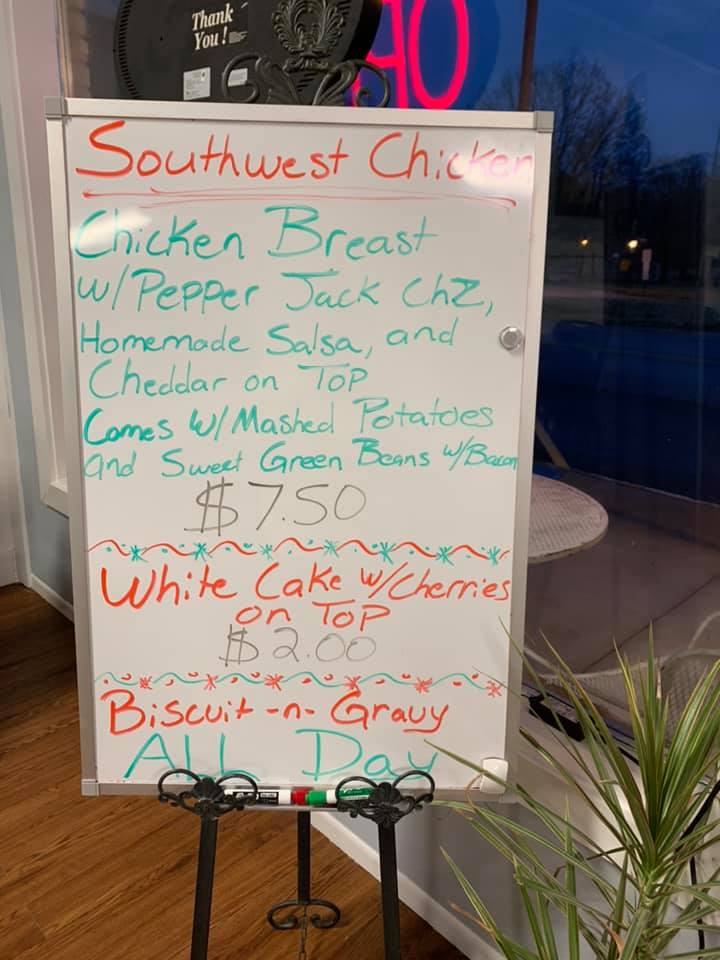 Thank
You!
HO
Southwest Chicken
Chicken Breast
w/Pepper Jack Chz,
Homemade Salsa, and
Cheddar on Top
Comes w/Mashed Potatoes
and Sweet Green Beans w/Bacon
$7.50
White Cake w/Cherries
on Top
$2.00
Biscuit -n- Gravy
All Day